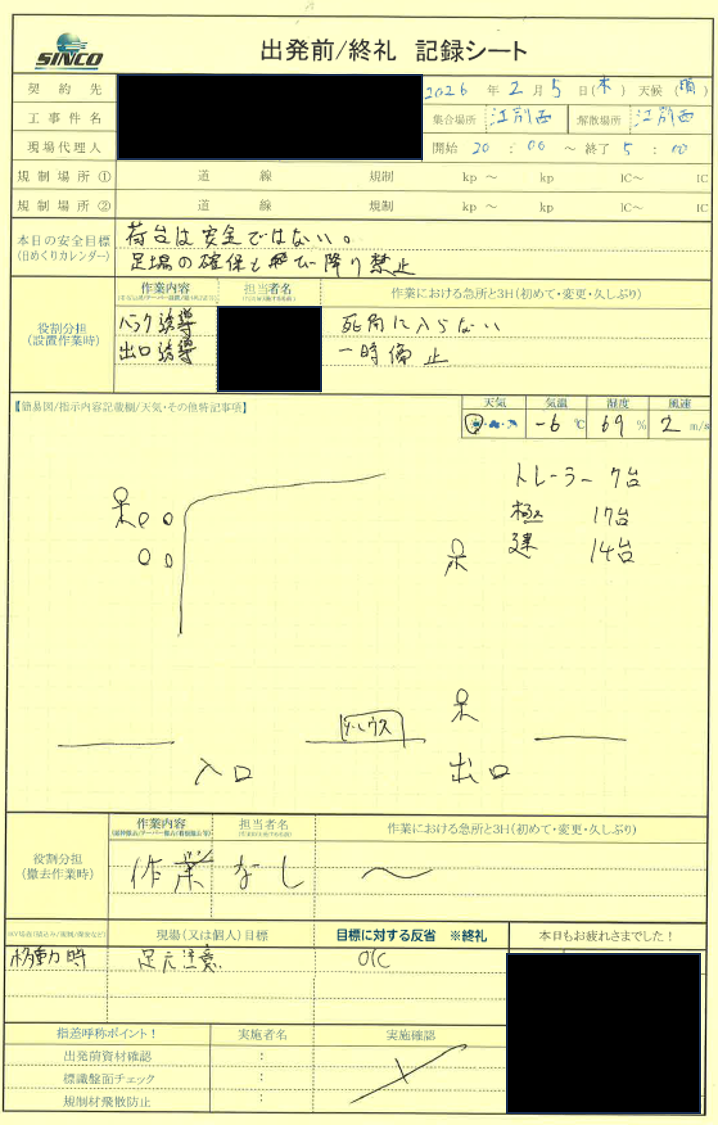 SINCO
出発前/終礼 記録シート
契約先
2026年2月5日(木) 天候(晴)
工事件名
集合場所 江別西 解散場所 江別西
現場代理人
開始 20:00 ～ 終了 5:00
規制場所① 道 線 規制 kp ～ kp IC～ IC
規制場所② 道 線 規制 kp ～ kp IC～ IC
本日の安全目標
(日めくりカレンダー)
荷台は安全ではない。
足場の確保と飛び降り禁止
役割分担
(設置作業時)
作業内容 担当者名 作業における急所と3H(初めて・変更・久しぶり)
バック誘導 死角に入らない
出口誘導 一時停止
【簡易図/指示内容記載欄/天気・その他特記事項】
天気 気温 湿度 風速
-6℃ 69% 2m/s
トレーラー 7台
極 17台
建 14台
ハウス
入口 出口
役割分担
(撤去作業時)
作業内容 担当者名 作業における急所と3H(初めて・変更・久しぶり)
作業なし ～
現場(又は個人)目標 目標に対する反省 ※終礼 本日もお疲れさまでした!
移動時 足元注意 OK
指差呼称ポイント! 実施者名 実施確認
出発前資材確認 :
標識盤面チェック :
規制材飛散防止 :